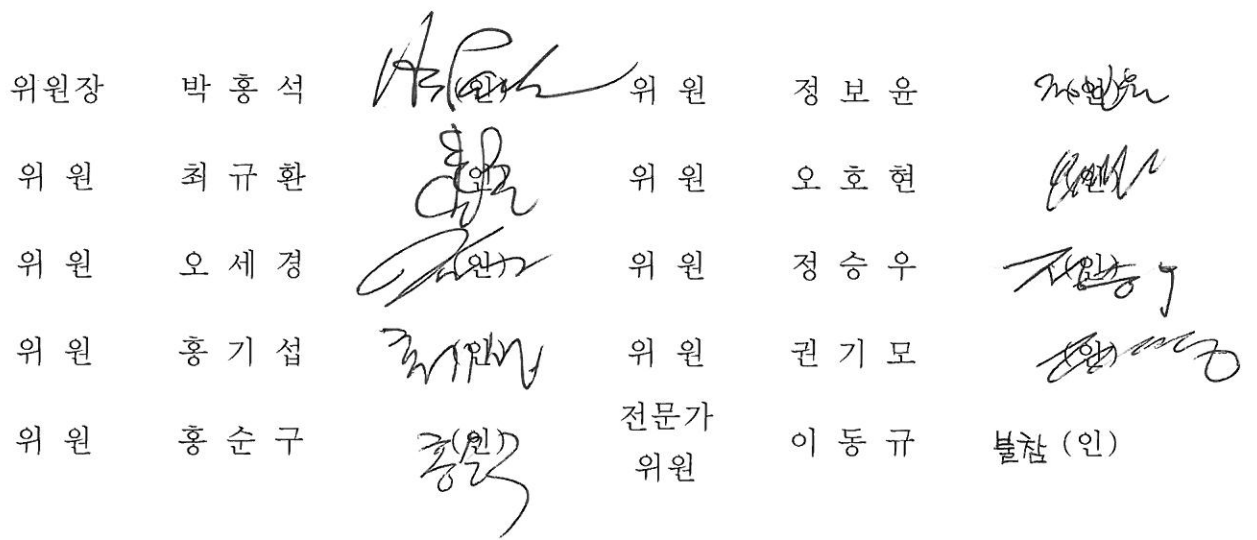 위원장 박 홍 석 (인) 위 원 정 보 윤 (인)
위 원 최 규 환 (인) 위 원 오 호 현 (인)
위 원 오 세 경 (인) 위 원 정 승 우 (인)
위 원 홍 기 섭 (인) 위 원 권 기 모 (인)
위 원 홍 순 구 (인) 전문가 위원 이 동 규 불참 (인)